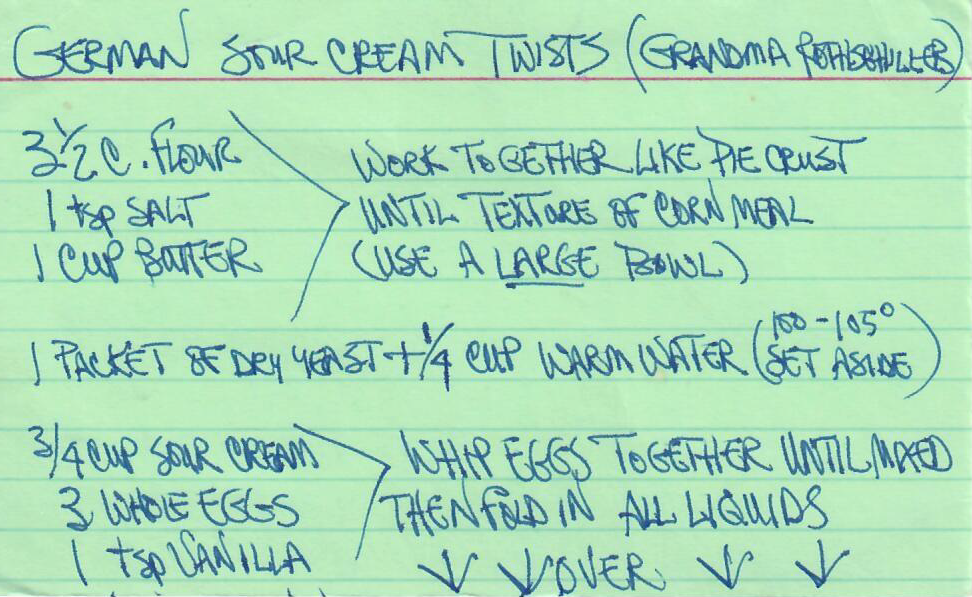 GERMAN SOUR CREAM TWISTS (GRANDMA ROTHSCHILLER)
3 1/2 C. FLOUR
1 tsp SALT
1 CUP BUTTER
WORK TOGETHER LIKE PIE CRUST
UNTIL TEXTURE OF CORN MEAL
(USE A LARGE BOWL)
1 PACKET OF DRY YEAST + 1/4 CUP WARM WATER (100-105° SET ASIDE)
3/4 CUP SOUR CREAM
3 WHOLE EGGS
1 tsp VANILLA
WHIP EGGS TOGETHER UNTIL MIXED
THEN FOLD IN ALL LIQUIDS
↓ ↓ OVER ↓ ↓